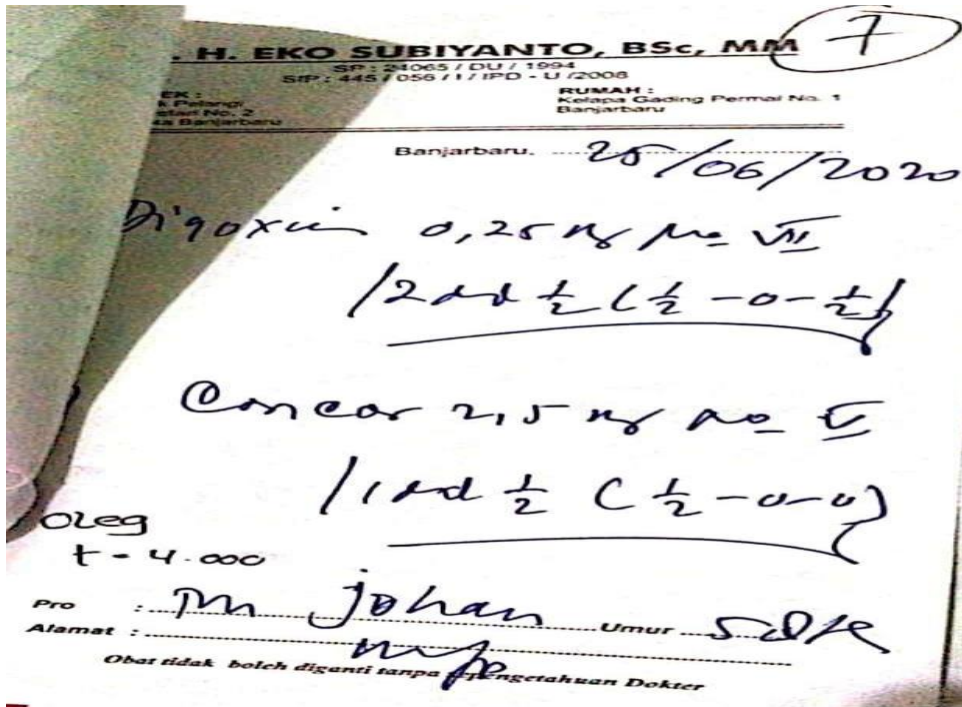 7
. H. EKO SUBIYANTO, BSc, MM
SP : 24065 / DU / 1994
SIP : 445 / 056 / I / IPD - U /2008
EK :
k Pelangi
etan No. 2
Banjarbaru
RUMAH :
Kelapa Gading Permai No. 1
Banjarbaru
Banjarbaru, 25/06/2020
Digoxin 0,25 mg No VII
/2dd ½ (½ -0- ½)
Concor 2,5 mg No V
/1dd ½ (½ -0-0)
oleg
t = 4.000
Pro : Tn Johan Umur
Alamat :
Obat tidak boleh diganti tanpa sepengetahuan Dokter